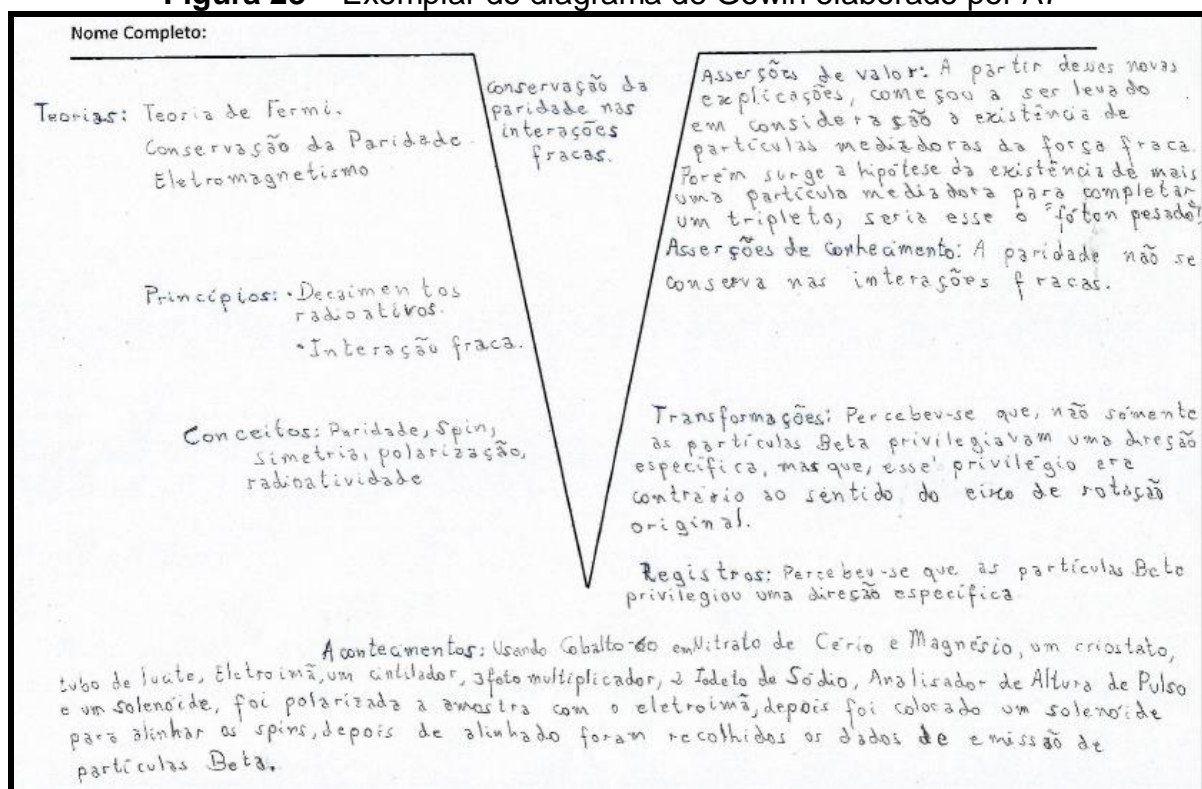 Figura 28 – Exemplar do diagrama de Gowin elaborado por A7
Nome Completo:
Teorias: Teoria de Fermi.
Conservação da Paridade.
Eletromagnetismo
Princípios: • Decaimentos
radioativos.
• Interação fraca.
Conceitos: Paridade, Spin,
simetria, polarização,
radioatividade
conservação da
paridade nas
interações
fracas.
Asserções de valor: A partir desses novas
explicações, começou a ser levado
em consideração a existência de
partículas mediadoras da força fraca.
Porém surge a hipótese da existência de mais
uma partícula mediadora para completar
um tripleto, seria esse o "fóton pesado".
Asserções de conhecimento: A paridade não se
conserva nas interações fracas.
Transformações: Percebeu-se que, não somente
as partículas Beta privilegiavam uma direção
específica, mas que, esse privilégio era
contrário ao sentido do eixo de rotação
original.
Registros: Percebeu-se que as partículas Beta
privilegiou uma direção específica.
Acontecimentos: Usando Cobalto-60 em Nitrato de Cério e Magnésio, um criostato,
tubo de lucite, Eletroimã, um cintilador, 3 fotomultiplicador, 2 Iodeto de Sódio, Analisador de Altura de Pulso
e um solenóide, foi polarizada a amostra com o eletroimã, depois foi colocado um solenóide
para alinhar os spins, depois de alinhado foram recolhidos os dados de emissão de
partículas Beta.